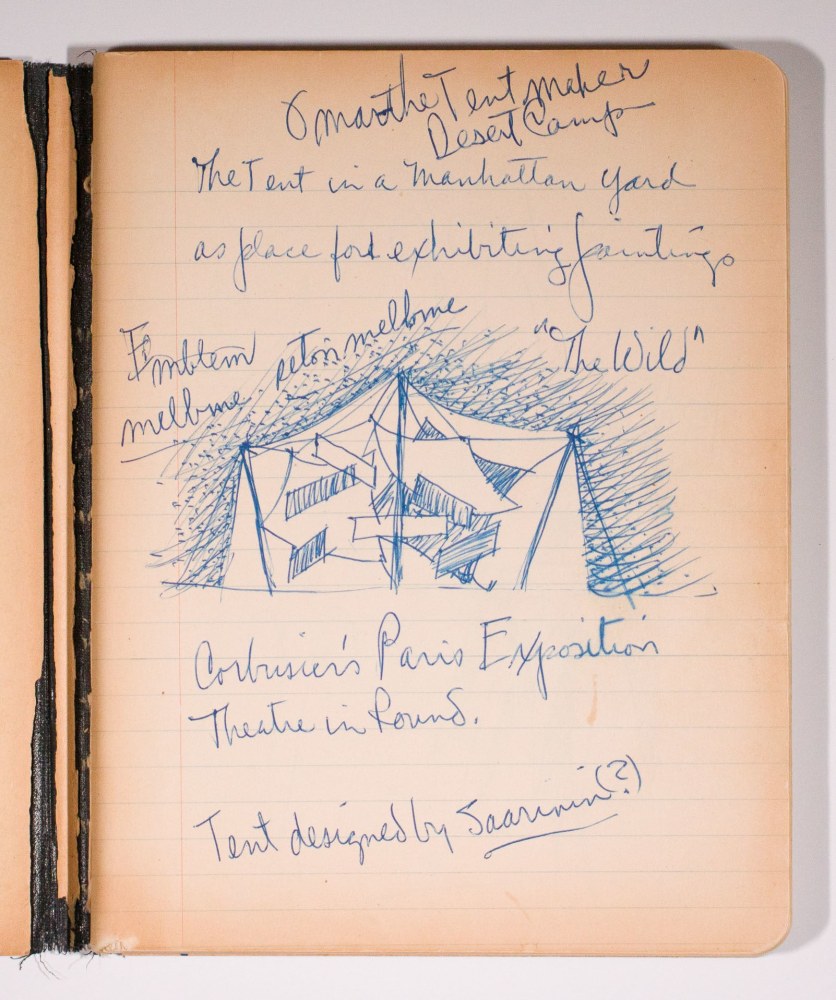 Omar the Tent maker
Desert Camp
The Tent in a Manhattan yard
as place for exhibiting paintings
Emblem
melbme
melbme
"The Wild"
Corbusier's Paris Exposition
Theatre in Round.
Tent designed by Saarinin (?)